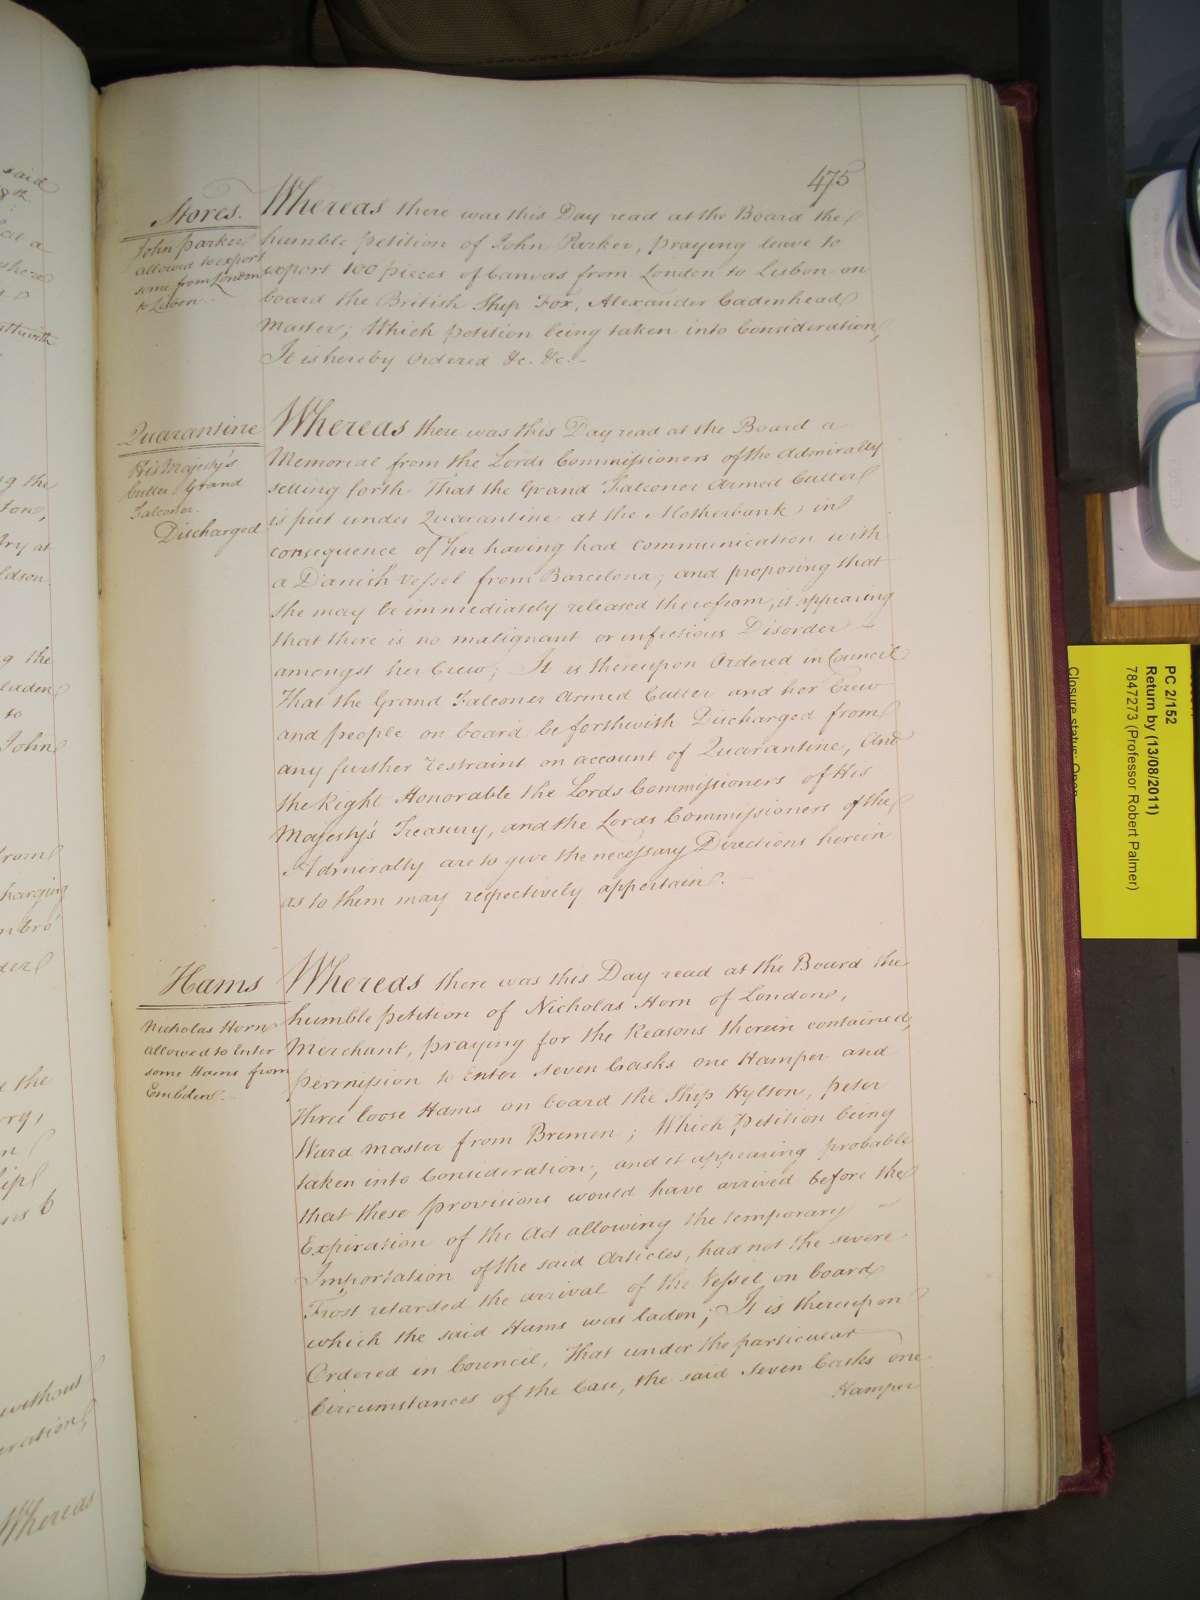 475
Stores.
John Parker
allowed to export
some from London
to Lisbon.
Whereas there was this Day read at the Board the
humble Petition of John Parker, praying leave to
export 100 pieces of Canvas from London to Lisbon on
board the British Ship Fox, Alexander Cadenhead
Master; Which Petition being taken into Consideration,
It is hereby Ordered &c. &c.
Quarantine
His Majesty's
Cutter Grand
Falconer.
Discharged
Whereas there was this Day read at the Board a
Memorial from the Lords Commissioners of the Admiralty
setting forth That the Grand Falconer Armed Cutter
is put under Quarantine at the Motherbank in
consequence of her having had communication with
a Danish Vessel from Barcelona; and proposing that
she may be immediately released therefrom, it appearing
that there is no malignant or infectious Disorder
amongst her Crew; It is thereupon Ordered in Council
That the Grand Falconer Armed Cutter and her Crew
and people on board be forthwith Discharged from
any further restraint on account of Quarantine, And
the Right Honorable the Lords Commissioners of His
Majesty's Treasury, and the Lords Commissioners of the
Admiralty are to give the necessary Directions herein
as to them may respectively appertain.
Hams
Nicholas Horn
allowed to Enter
some Hams from
Embden.
Whereas there was this Day read at the Board the
humble Petition of Nicholas Horn of London,
Merchant, praying for the Reasons therein contained,
permission to Enter seven Casks one Hamper and
three loose Hams on board the Ship Hylton, Peter
Ward Master from Bremen; Which Petition being
taken into Consideration, and it appearing probable
that these provisions would have arrived before the
Expiration of the Act allowing the temporary
Importation of the said Articles, had not the severe
Frost retarded the arrival of the Vessel on board
which the said Hams was laden; It is thereupon
Ordered in Council, That under the particular
Circumstances of the Case, the said seven Casks one
Hamper
said
8th
at a
where
g the
try at
g the
laden
to
John
from
charging
d the
without
Whereas
PC 2/152
Return by (13/08/2011)
7847273 (Professor Robert Palmer)
Closure status: Open